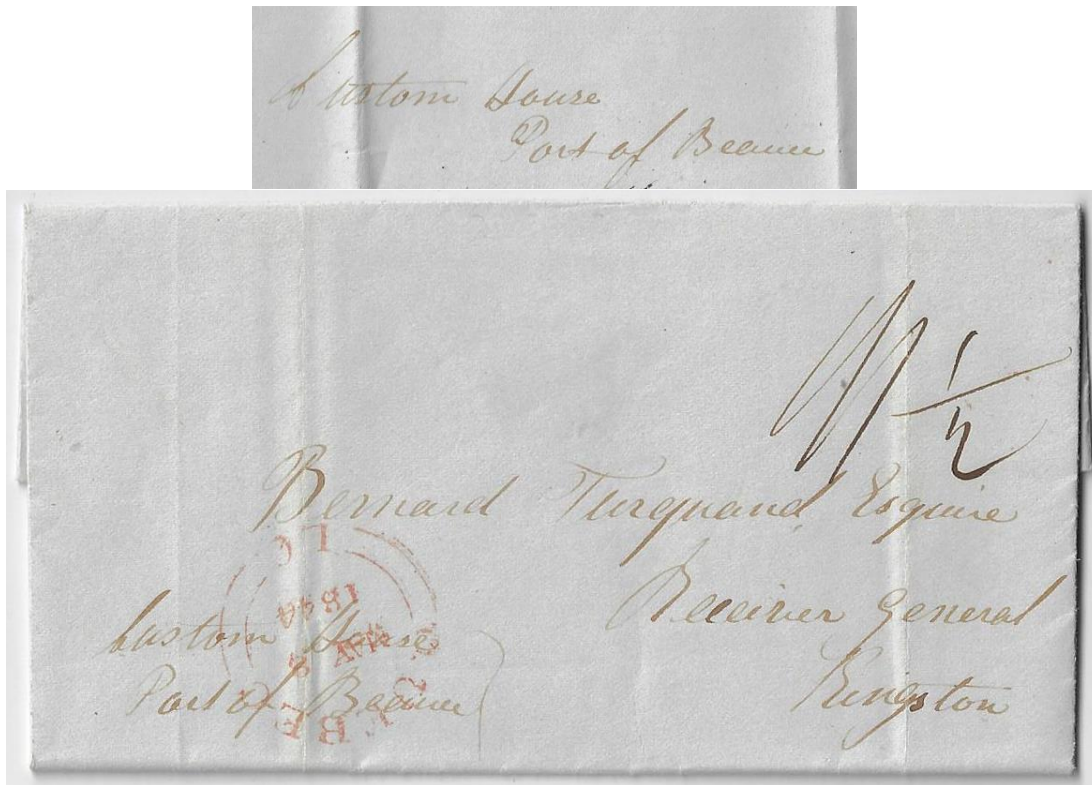 Custom House
Port of Beauce
1/1 1/2
Bernard Turquand Esquire
Receiver General
Kingston
Custom House
Port of Beauce
L C
MAY